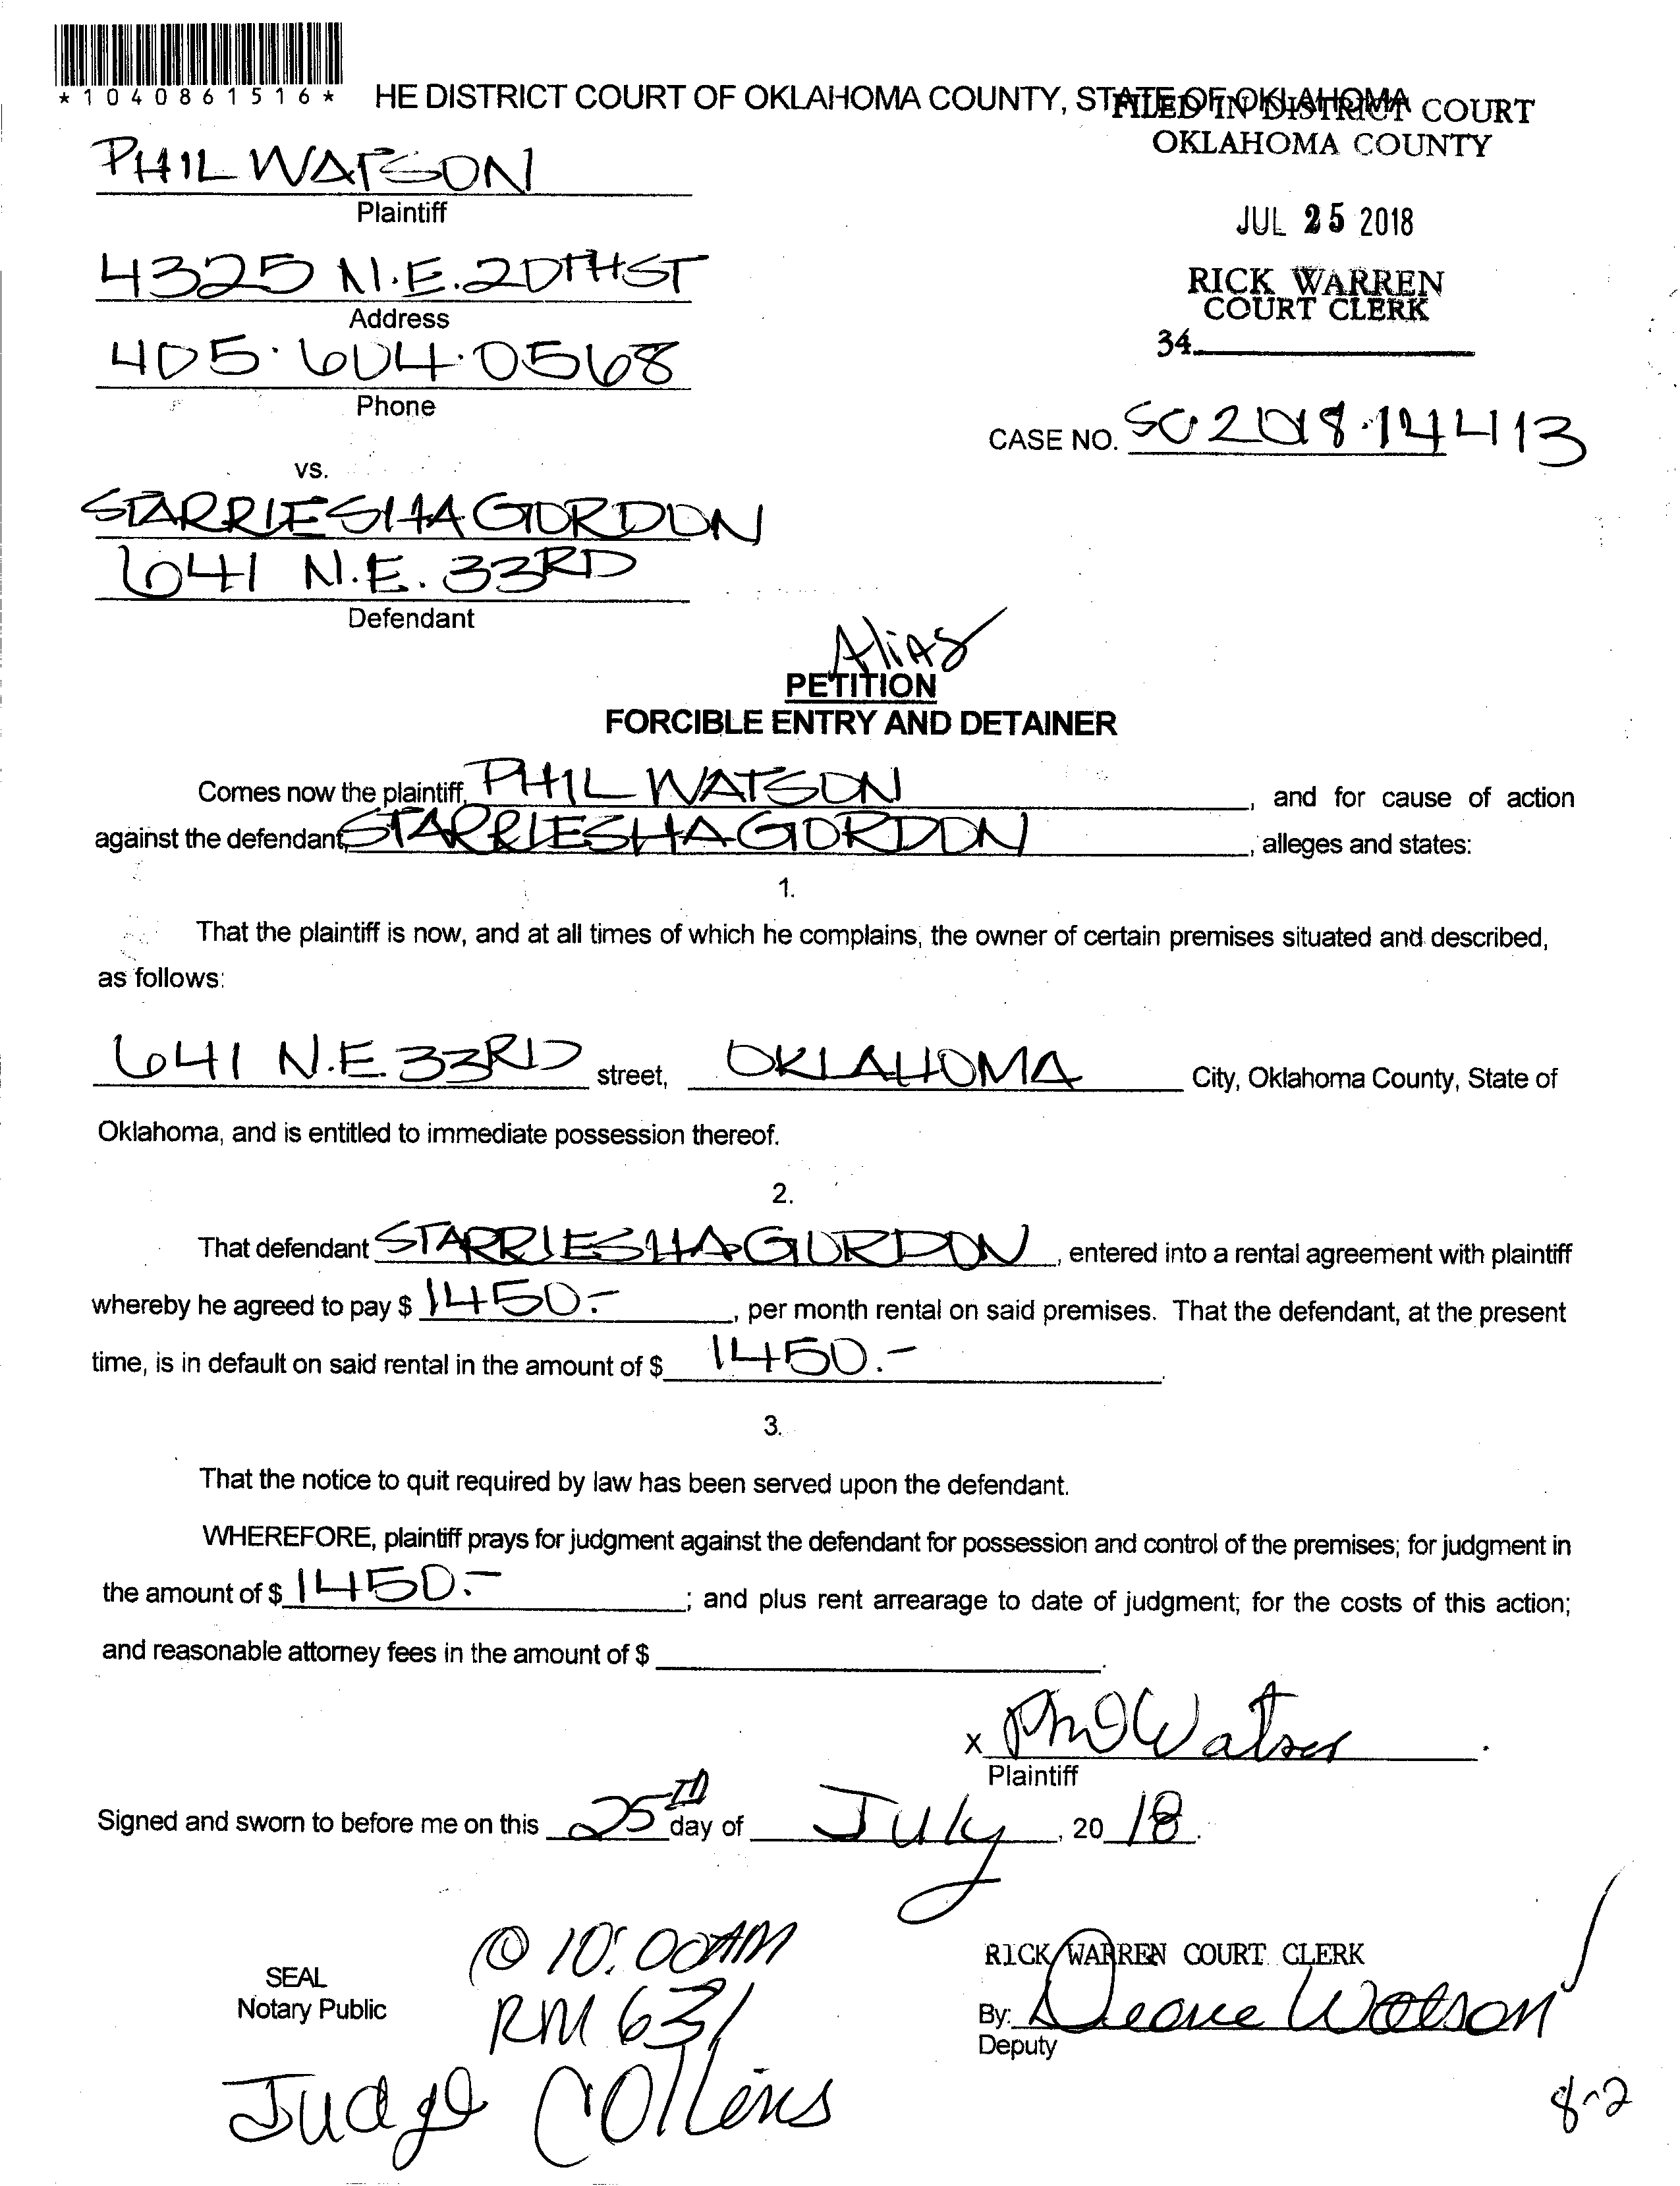 *1040861516*
HE DISTRICT COURT OF OKLAHOMA COUNTY, STATE OF OKLAHOMA
FILED IN DISTRICT COURT
OKLAHOMA COUNTY
PHIL WATSON
Plaintiff
JUL 25 2018
4325 N.E. 20TH ST
Address
RICK WARREN
COURT CLERK
34.
405.604.0568
Phone
CASE NO. SC 2018.14413
vs.
STARRIESHA GORDON
641 N.E. 33RD
Defendant
Alias
PETITION
FORCIBLE ENTRY AND DETAINER
Comes now the plaintiff, PHIL WATSON, and for cause of action
against the defendant, STARRIESHA GORDON, alleges and states:
1.
That the plaintiff is now, and at all times of which he complains, the owner of certain premises situated and described,
as follows:
641 N.E. 33RD street, OKLAHOMA City, Oklahoma County, State of
Oklahoma, and is entitled to immediate possession thereof.
2.
That defendant STARRIESHA GORDON, entered into a rental agreement with plaintiff
whereby he agreed to pay $ 1450.-, per month rental on said premises. That the defendant, at the present
time, is in default on said rental in the amount of $ 1450.-.
3.
That the notice to quit required by law has been served upon the defendant.
WHEREFORE, plaintiff prays for judgment against the defendant for possession and control of the premises; for judgment in
the amount of $ 1450.-; and plus rent arrearage to date of judgment; for the costs of this action;
and reasonable attorney fees in the amount of $ .
x Phil Watson
Plaintiff
Signed and sworn to before me on this 25th day of July, 2018.
@ 10:00AM
RICK WARREN COURT CLERK
SEAL
Notary Public
RM 631
By: Deane Watson
Deputy
Judge Collins
8-2